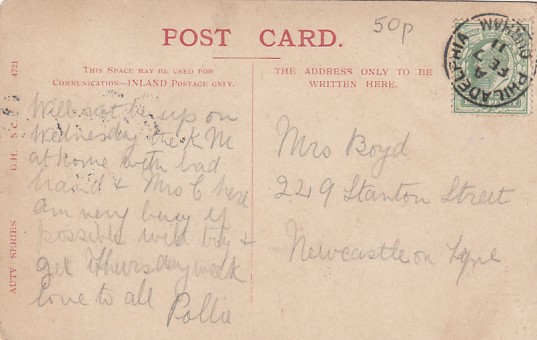 50p
POST CARD.
THIS SPACE MAY BE USED FOR
COMMUNICATION—INLAND POSTAGE ONLY.
THE ADDRESS ONLY TO BE
WRITTEN HERE.
PHILADELPHIA
DURHAM
A
FE 7
11
4721
G.H.
AUTY SERIES
Will not be up on
Wednesday the
at home with bad
hand & Mrs C here
am very busy if
possible will try &
get Thursday week
love to all
Pollie
Mrs Boyd
249 Stanton Street
Newcastle on Tyne